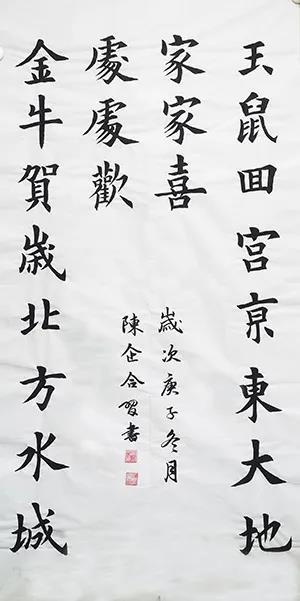 玉鼠囬宮亰東大地
家家喜
金牛賀嵗北方水城
處處歡
嵗次庚子冬月
陳企合習書